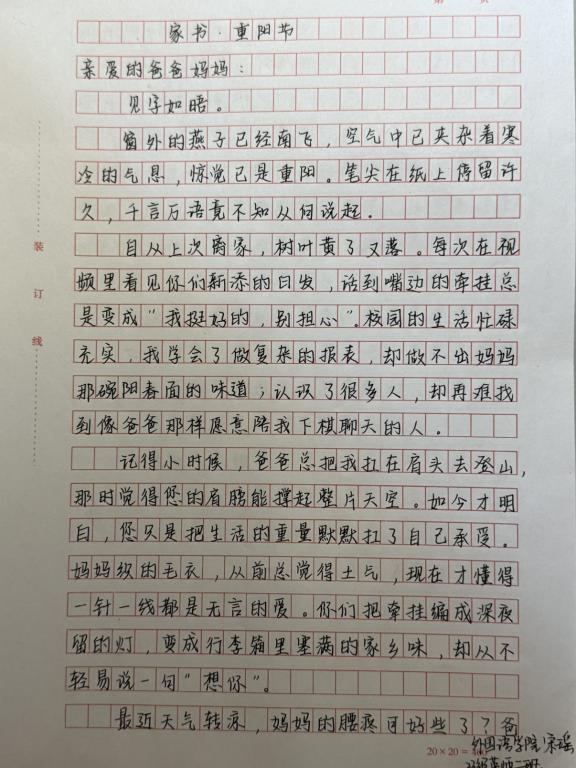 页
家书·重阳节
亲爱的爸爸妈妈：
见字如晤。
窗外的燕子已经南飞，空气中已夹杂着寒
冷的气息，惊觉已是重阳。笔尖在纸上停留许
久，千言万语竟不知从何说起．
自从上次离家，树叶黄了又落。每次在视
频里看见你们新添的白发，话到嘴边的牵挂总
是变成“我挺好的，别担心”。校园的生活忙碌
充实，我学会了做复杂的报表，却做不出妈妈
那碗阳春面的味道；认识了很多人，却再难找
到像爸爸那样愿意陪我下棋聊天的人。
记得小时候，爸爸总把我扛在肩头去登山，
那时觉得您的肩膀能撑起整片天空。如今才明
白，您只是把生活的重量默默扛了自己承受。
妈妈织的毛衣，从前总觉得土气，现在才懂得
一针一线都是无言的爱。你们把牵挂编成深夜
留的灯，变成行李箱里塞满的家乡味，却从不
轻易说一句“想你”。
最近天气转凉，妈妈的腰疼可好些了？爸
装
订
线
20×20=400
外国语学院宋瑶
23级英师二班